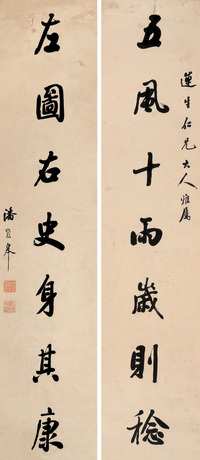 五風十雨歲則稔
蓮生仁兄大人雅屬
左圖右史身其康
潘齡皋